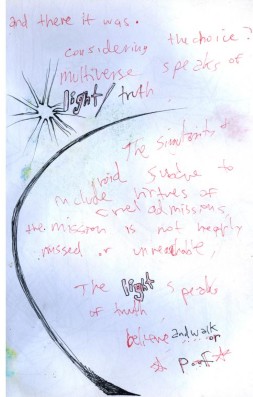 and there it was.
considering the choice?
multiverse speaks of
light/truth
The
void subdue to
include virtues of
cruel admissions,
the mission is not happily
missed or unreachable,
The light speaks
of truth
believe and walk
or